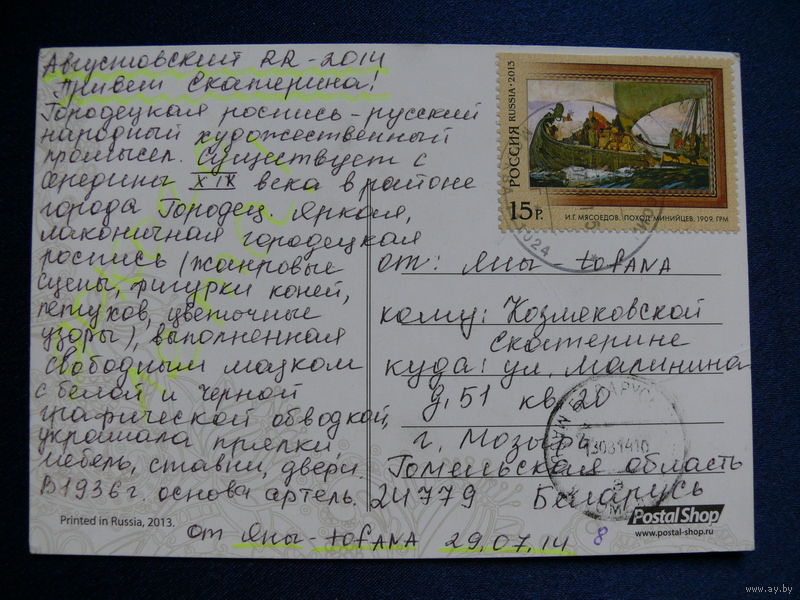 Августовский RR-2014
Привет Екатерина!
Городецкая роспись-русский
народный художественный
промысел. Существует с
середины XIX века в районе
города Городец. Яркая,
лаконичная городецкая
роспись (жанровые
сцены, фигурки коней,
петухов, цветочные
узоры), выполненная
свободным мазком
с белой и черной
графической обводкой,
украшала прялки
мебель, ставни, двери.
В 1936г. основа артель.
Printed in Russia, 2013.
от Яны-tofANA 29.07.14 8
РОССИЯ RUSSIA·2013
15 Р.
И.Г. МЯСОЕДОВ. ПОХОД МИНИЙЦЕВ. 1909. ГРМ
от: Яны-tofANA
кому: Козмековской
Екатерине
куда: ул. Малинина
д.51 кв. 20
г. Мозырь
Гомельская область
24779 Беларусь
PostalShop
www.postal-shop.ru
www.ay.by